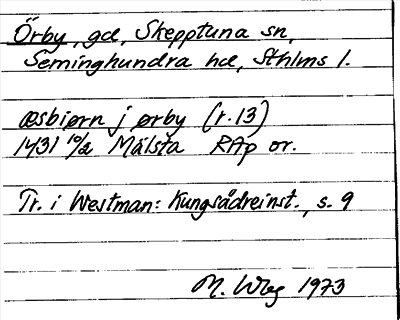 Örby, gd, Skepptuna sn,
Seminghundra hd, Sthlms l.
æsbiørn j ørby (r. 13)
1431 10/2 Mälsta RAp or.
Tr. i Westman: Kungsådreinst., s. 9
M. Wbg 1973